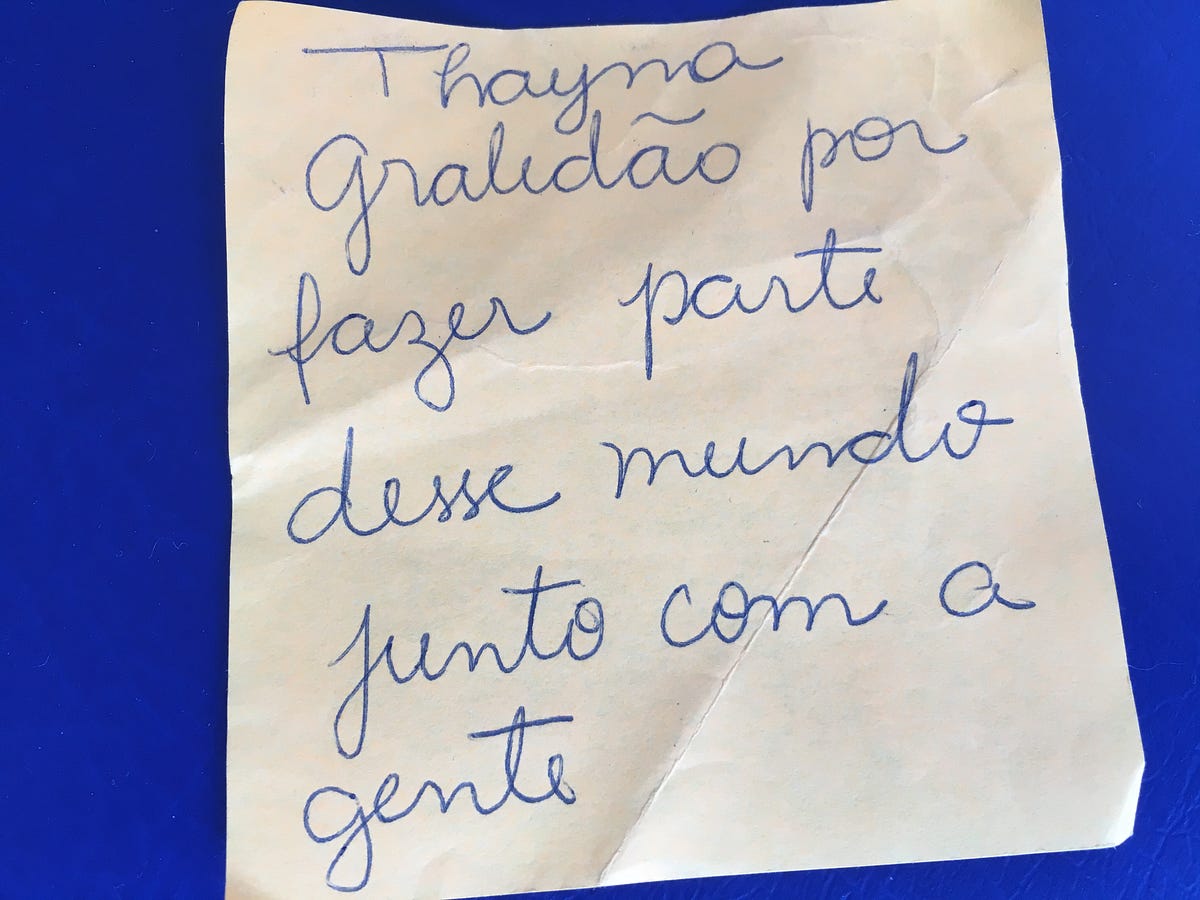 Thayna
Gratidão por
fazer parte
desse mundo
junto com a
gente